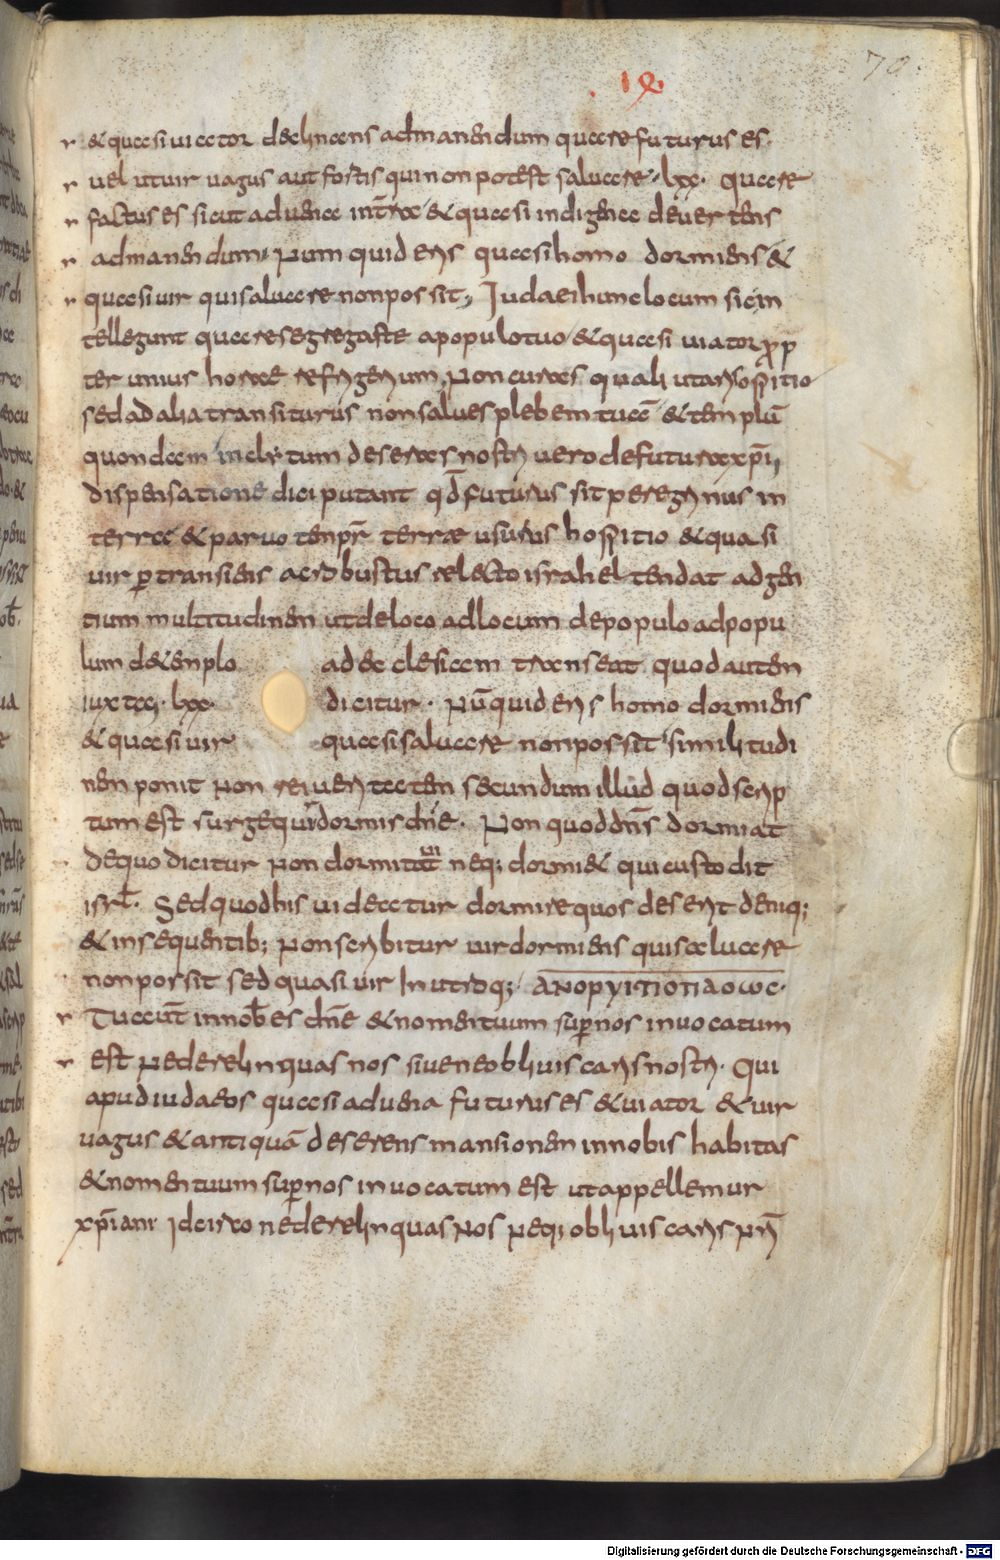 70
& quasi uiator declinans admanendum quare futurus es·
uel utuir uagus aut fortis qui non potest saluare· lxx· quare
factus es sicut aduena interra & quasi indigena deuertens
admanendum· Numquid eris quasi homo dormiens &
quasi uir qui saluare non possit; Iudaei hunc locum sic in
tellegunt quare segregaste apopulo tuo & quasi uiator prop
ter unius horae refrigerium Non curas quali utaris ospitio
sed ad alia transiturus non salues plebem tuā & templū
quondam inclitum deseras nostri uero de futura xp̄i
dispensatione dici putant qd̄ futurus sit peregrinus in
terra & paruo tempr̄ terrae usurus hospitio & quasi
uir ꝑtransiens ac robustus relecto israhel tendat ad gen
tium multitudinem ut de loco ad locum de populo ad popu
lum de templo ad ecclesiam transeat quod autem
iuxta· lxx· dicitur· Nū quid eris homo dormiens
& quasi uir quasi saluare non possit similitudi
nem ponit Non rei ueritatem secundum illud quod scrip
tum est surge quir dormis dn̄e· Non quod dn̄s dormiat
de quo dicitur Non dormitat neq; dormi& qui custodit
isrl̄· Sed quod his uideatur dormire quos deserit deniq;
& insequentib; Non scribitur uir dormiens qui saluare
non possit sed quasi uir Inutroq;
Tu aut̄ innob̄ es dn̄e & nomen tuum suꝑnos inuocatum
est Nederelinquas nos siue neobliuiscaris nostri· Qui
apud iudaeos quasi aduena futurus es & uiator & uir
uagus & antiquā deserens mansionem innobis habitas
& nomen tuum suꝑnos inuocatum est ut appellemur
xp̄iani Idcirco nederelinquas Nos Neq; obliuiscaris nr̄i
Digitalisierung gefördert durch die Deutsche Forschungsgemeinschaft - DFG